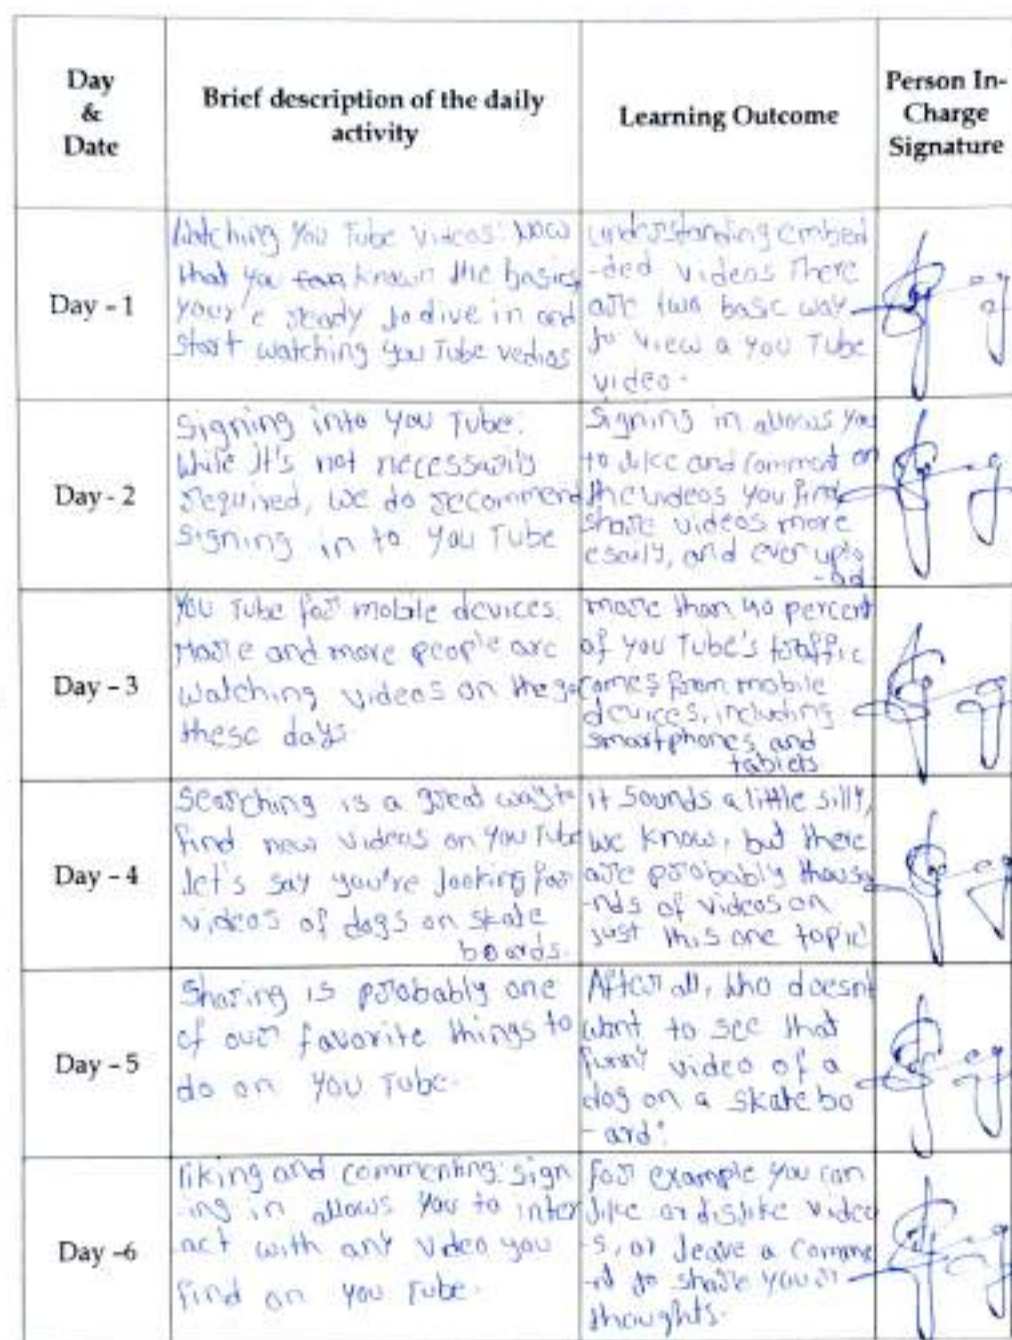 Day
&
Date
Brief description of the daily
activity
Learning Outcome
Person In-
Charge
Signature
Day - 1
Watching You Tube Videos: Now
that you known the basics,
your'e ready to dive in and
start watching you Tube vedios
understanding embed
-ded videos There
are two basic way
to view a You Tube
video.
Day - 2
Signing into You Tube:
While it's not necessarily
required, we do recommend
signing in to You Tube
Signing in allows you
to like and comment on
the videos you find,
share videos more
esaily, and even uplo
-ad
Day - 3
You Tube for mobile devices.
More and more people are
watching videos on the go
these days.
more than 40 percent
of you Tube's traffic
comes from mobile
devices, including
smartphones and
tablets
Day - 4
Searching is a great way to
find new videos on You Tube
let's say you're looking for
videos of dogs on skate
boards.
it sounds a little silly,
we know, but there
are probably thousa
-nds of videos on
just this one topic!
Day - 5
Sharing is probably one
of our favorite things to
do on You Tube.
After all, who doesn't
want to see that
funny video of a
dog on a skate bo
-ard?
Day -6
liking and commenting: sign
-ing in allows you to inter
-act with any video you
find on you Tube.
for example you can
like or dislike video
-s, or leave a comme
-nt to share your
thoughts.